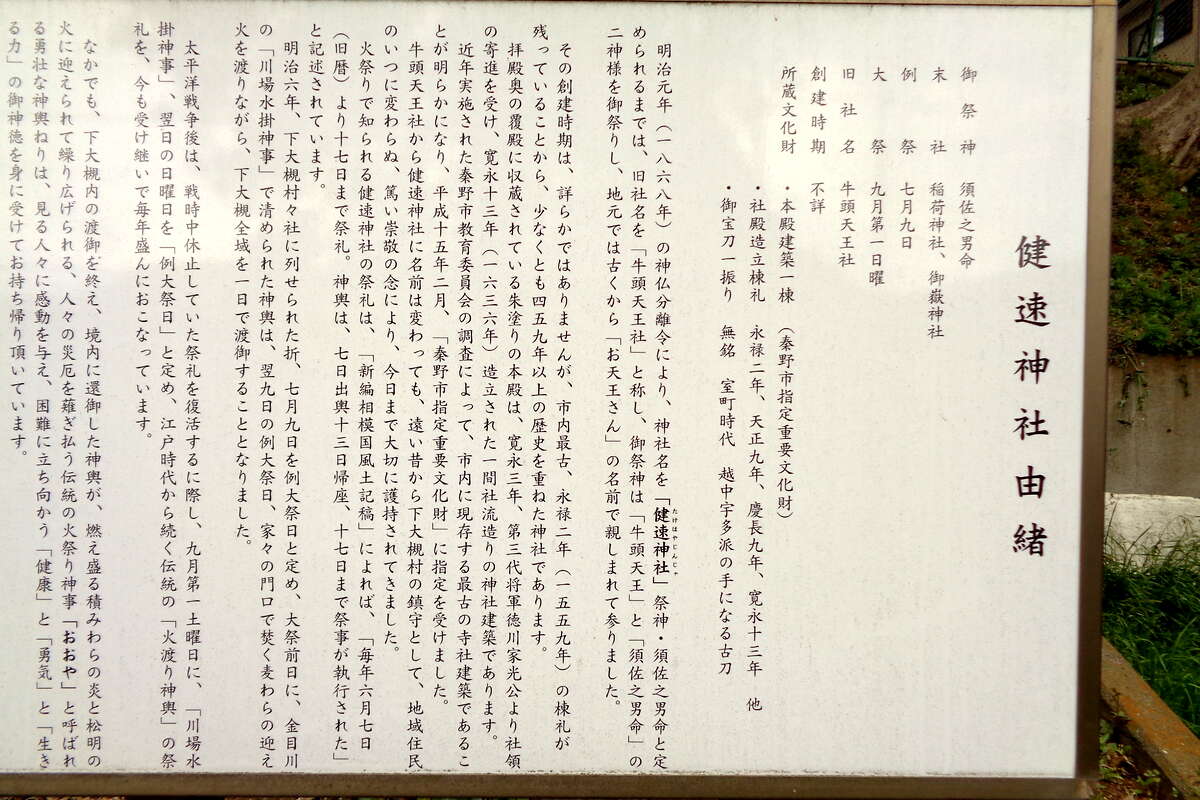 健速神社由緒
御祭神 須佐之男命
末社 稲荷神社、御嶽神社
例祭 七月九日
大祭 九月第一日曜
旧社名 牛頭天王社
創建時期 不詳
所蔵文化財 ・本殿建築一棟 (秦野市指定重要文化財)
・社殿造立棟礼 永禄二年、天正九年、慶長九年、寛永十三年 他
・御宝刀一振り 無銘 室町時代 越中宇多派の手になる古刀
明治元年(一八六八年)の神仏分離令により、神社名を「健速神社」祭神・須佐之男命と定
たけはやじんじゃ
められるまでは、旧社名を「牛頭天王社」と称し、御祭神は「牛頭天王」と「須佐之男命」の
二神様を御祭りし、地元では古くから「お天王さん」の名前で親しまれて参りました。
その創建時期は、詳らかではありませんが、市内最古、永禄二年(一五五九年)の棟礼が
残っていることから、少なくとも四五九年以上の歴史を重ねた神社であります。
拝殿奥の覆殿に収蔵されている朱塗りの本殿は、寛永三年、第三代将軍徳川家光公より社領
の寄進を受け、寛永十三年(一六三六年)造立された一間社流造りの神社建築であります。
近年実施された秦野市教育委員会の調査によって、市内に現存する最古の寺社建築であるこ
とが明らかになり、平成十五年二月、「秦野市指定重要文化財」に指定を受けました。
牛頭天王社から健速神社に名前は変わっても、遠い昔から下大槻村の鎮守として、地域住民
のいつに変わらぬ、篤い崇敬の念により、今日まで大切に護持されてきました。
火祭りで知られる健速神社の祭礼は、「新編相模国風土記稿」によれば、「毎年六月七日
(旧暦)より十七日まで祭礼。神輿は、七日出輿十三日帰座、十七日まで祭事が執行された」
と記述されています。
明治六年、下大槻村々社に列せられた折、七月九日を例大祭日と定め、大祭前日に、金目川
の「川場水掛神事」で清められた神輿は、翌九日の例大祭日、家々の門口で焚く麦わらの迎え
火を渡りながら、下大槻全域を一日で渡御することとなりました。
太平洋戦争後は、戦時中休止していた祭礼を復活するに際し、九月第一土曜日に、「川場水
掛神事」、翌日の日曜日を「例大祭日」と定め、江戸時代から続く伝統の「火渡り神輿」の祭
礼を、今も受け継いで毎年盛んにおこなっています。
なかでも、下大槻内の渡御を終え、境内に還御した神輿が、燃え盛る積みわらの炎と松明の
火に迎えられて繰り広げられる、人々の災厄を薙ぎ払う伝統の火祭り神事「おおや」と呼ばれ
る勇壮な神輿ねりは、見る人々に感動を与え、困難に立ち向かう「健康」と「勇気」と「生き
る力」の御神徳を身に受けてお持ち帰り頂いています。